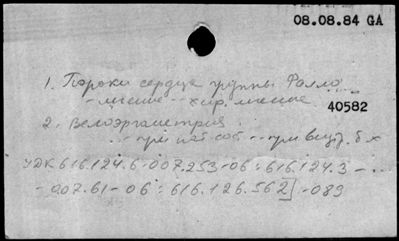 08.08.84 GA
1. Пороки сердца группы Фалло
- лечение - хир. лечение.
40582
2. Велоэргометрия
- при пат. сос - - при внутр. б-х
УДК 616.124.6-007.253-06:616.124.3-...
-007.61-06:616.126.562]-089